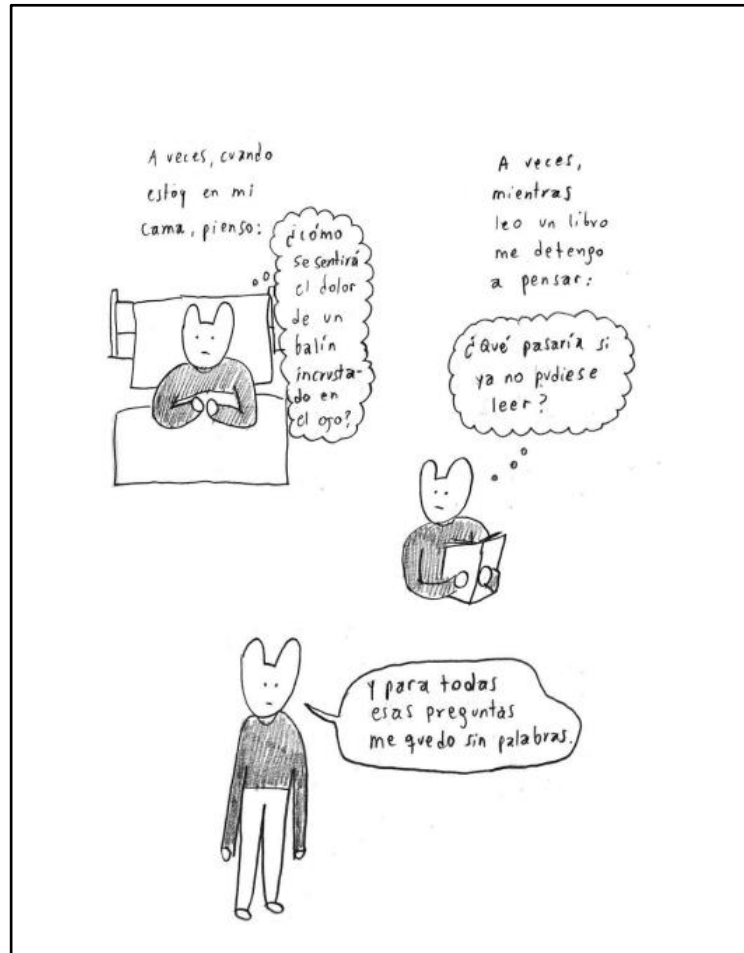 A veces, cuando
estoy en mi
cama, pienso:
¿cómo
se sentirá
el dolor
de un
balín
incrusta-
do en
el ojo?
A veces,
mientras
leo un libro
me detengo
a pensar:
¿Qué pasaría si
ya no pudiese
leer?
Y para todas
esas preguntas
me quedo sin palabras.